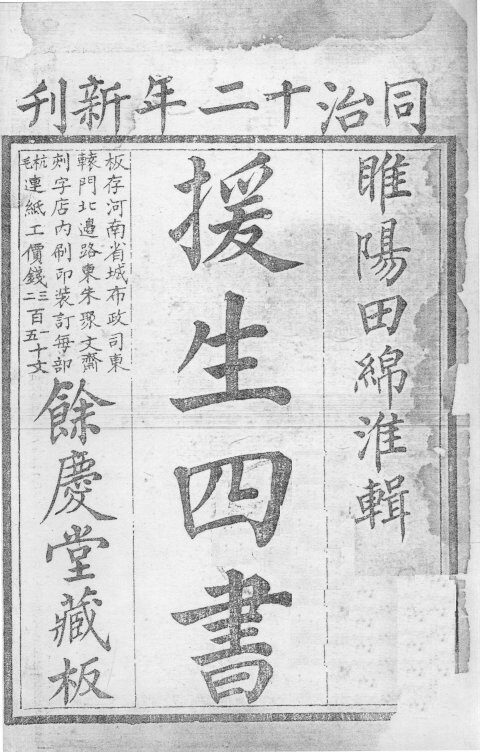 同治十二年新刊
睢陽田綿淮輯
援生四書
板存河南省城布政司東
轅門北邊路東朱聚文齋
刻字店內刷印裝訂每部
杭毛連紙工價錢三二百一五十文
餘慶堂藏板